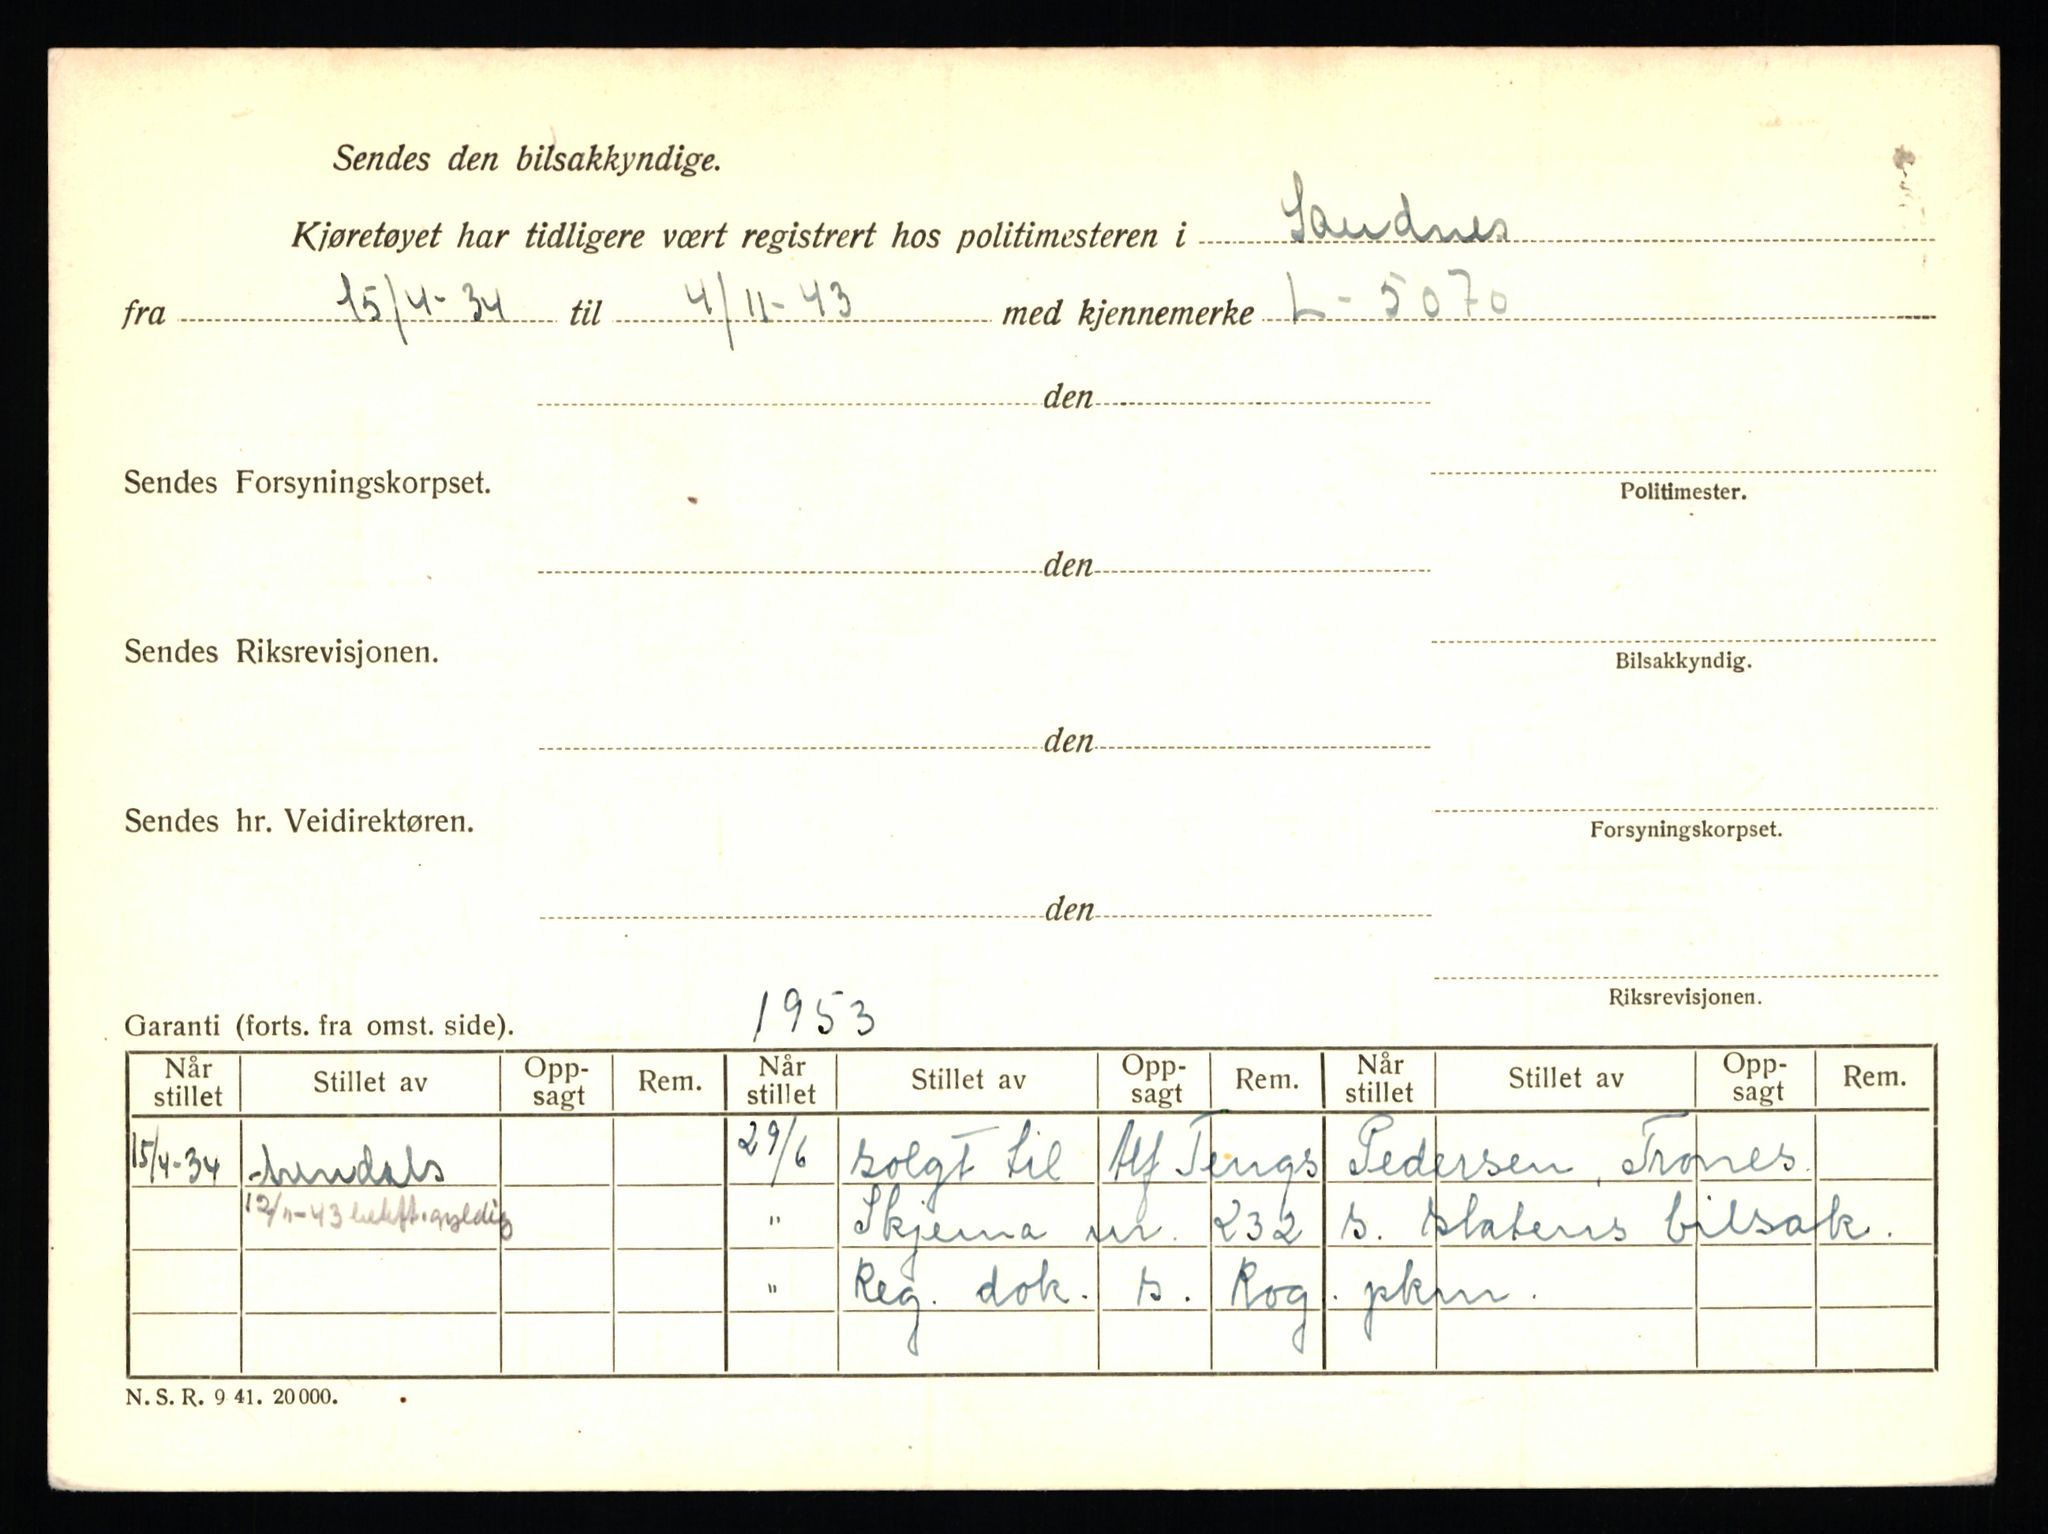 Sendes den bilsakkyndige.
Kjøretøyet har tidligere vært registrert hos politimesteren i Sandnes
fra 15/4-34 til 4/11-43 med kjennemerke L-5070
den
Sendes Forsyningskorpset.
Politimester.
den
Sendes Riksrevisjonen.
Bilsakkyndig.
den
Sendes hr. Veidirektøren.
Forsyningskorpset.
den
Riksrevisjonen.
Garanti (forts. fra omst. side). 1953
Når stillet Stillet av Opp-sagt Rem. Når stillet Stillet av Opp-sagt Rem. Når stillet Stillet av Opp-sagt Rem.
15/4-34 29/6 solgt til Alf Tengs Pedersen, Trones.
12/11-43 bekft. gyldig " Skjema nr. 232 s. statens bilsak.
" Reg. dok. s. Rog. pkm.
N. S. R. 9 41. 20 000.